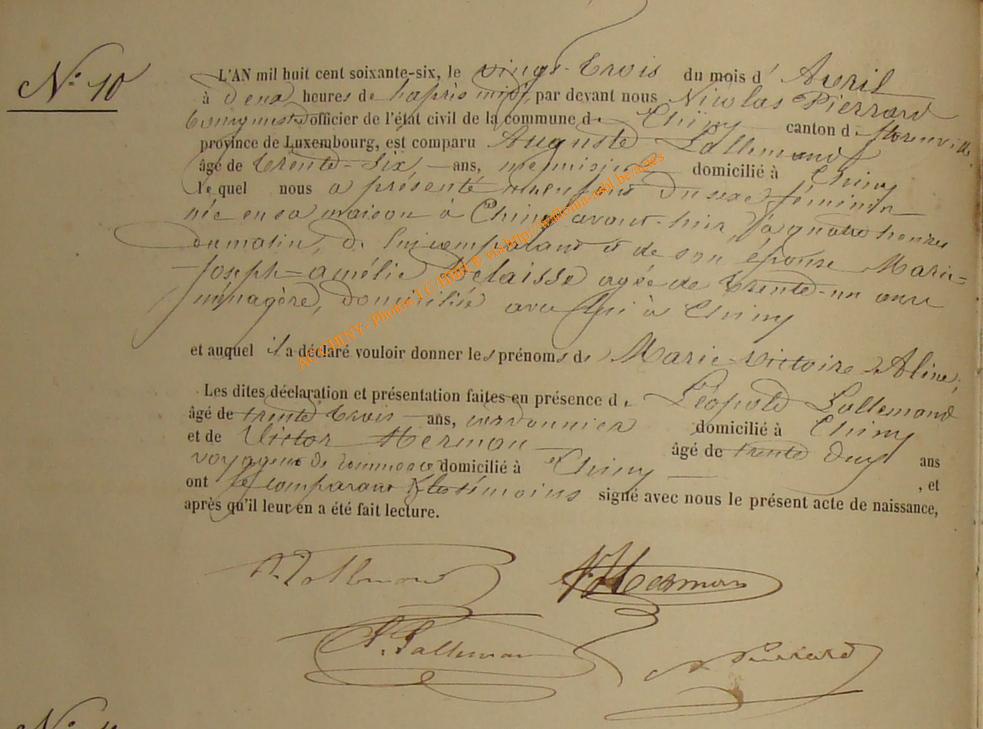 No 10
L'AN mil huit cent soixante-six, le vingt-trois du mois d' Avril
à deux heures de l'après midi, par devant nous Nicolas Pierrard
Bourgmestre officier de l'état civil de la commune de Chiny canton de Florenville
province de Luxembourg, est comparu Auguste Lallemand
âgé de trente-six ans, menuisier domicilié à Chiny
lequel nous a présenté un enfant du sexe féminin
née en sa maison à Chiny avant-hier à quatre heures
du matin, de lui comparant et de son épouse Marie-
Joseph-Amélie Delaisse agée de trente-un ans
ménagère, domiciliée avec lui à Chiny
et auquel il a déclaré vouloir donner les prénoms de Marie-Victoire-Aline,
Les dites déclaration et présentation faites en présence de Léopold Lallemand
âgé de trente trois ans, cordonnier domicilié à Chiny
et de Victor Herman âgé de trente deux ans
voyageur de commerce domicilié à Chiny , et
ont le comparant & les témoins signé avec nous le présent acte de naissance,
après qu'il leur en a été fait lecture.
A. Lallemand V. Herman
L. Lallemand N. Pierrard
No 11